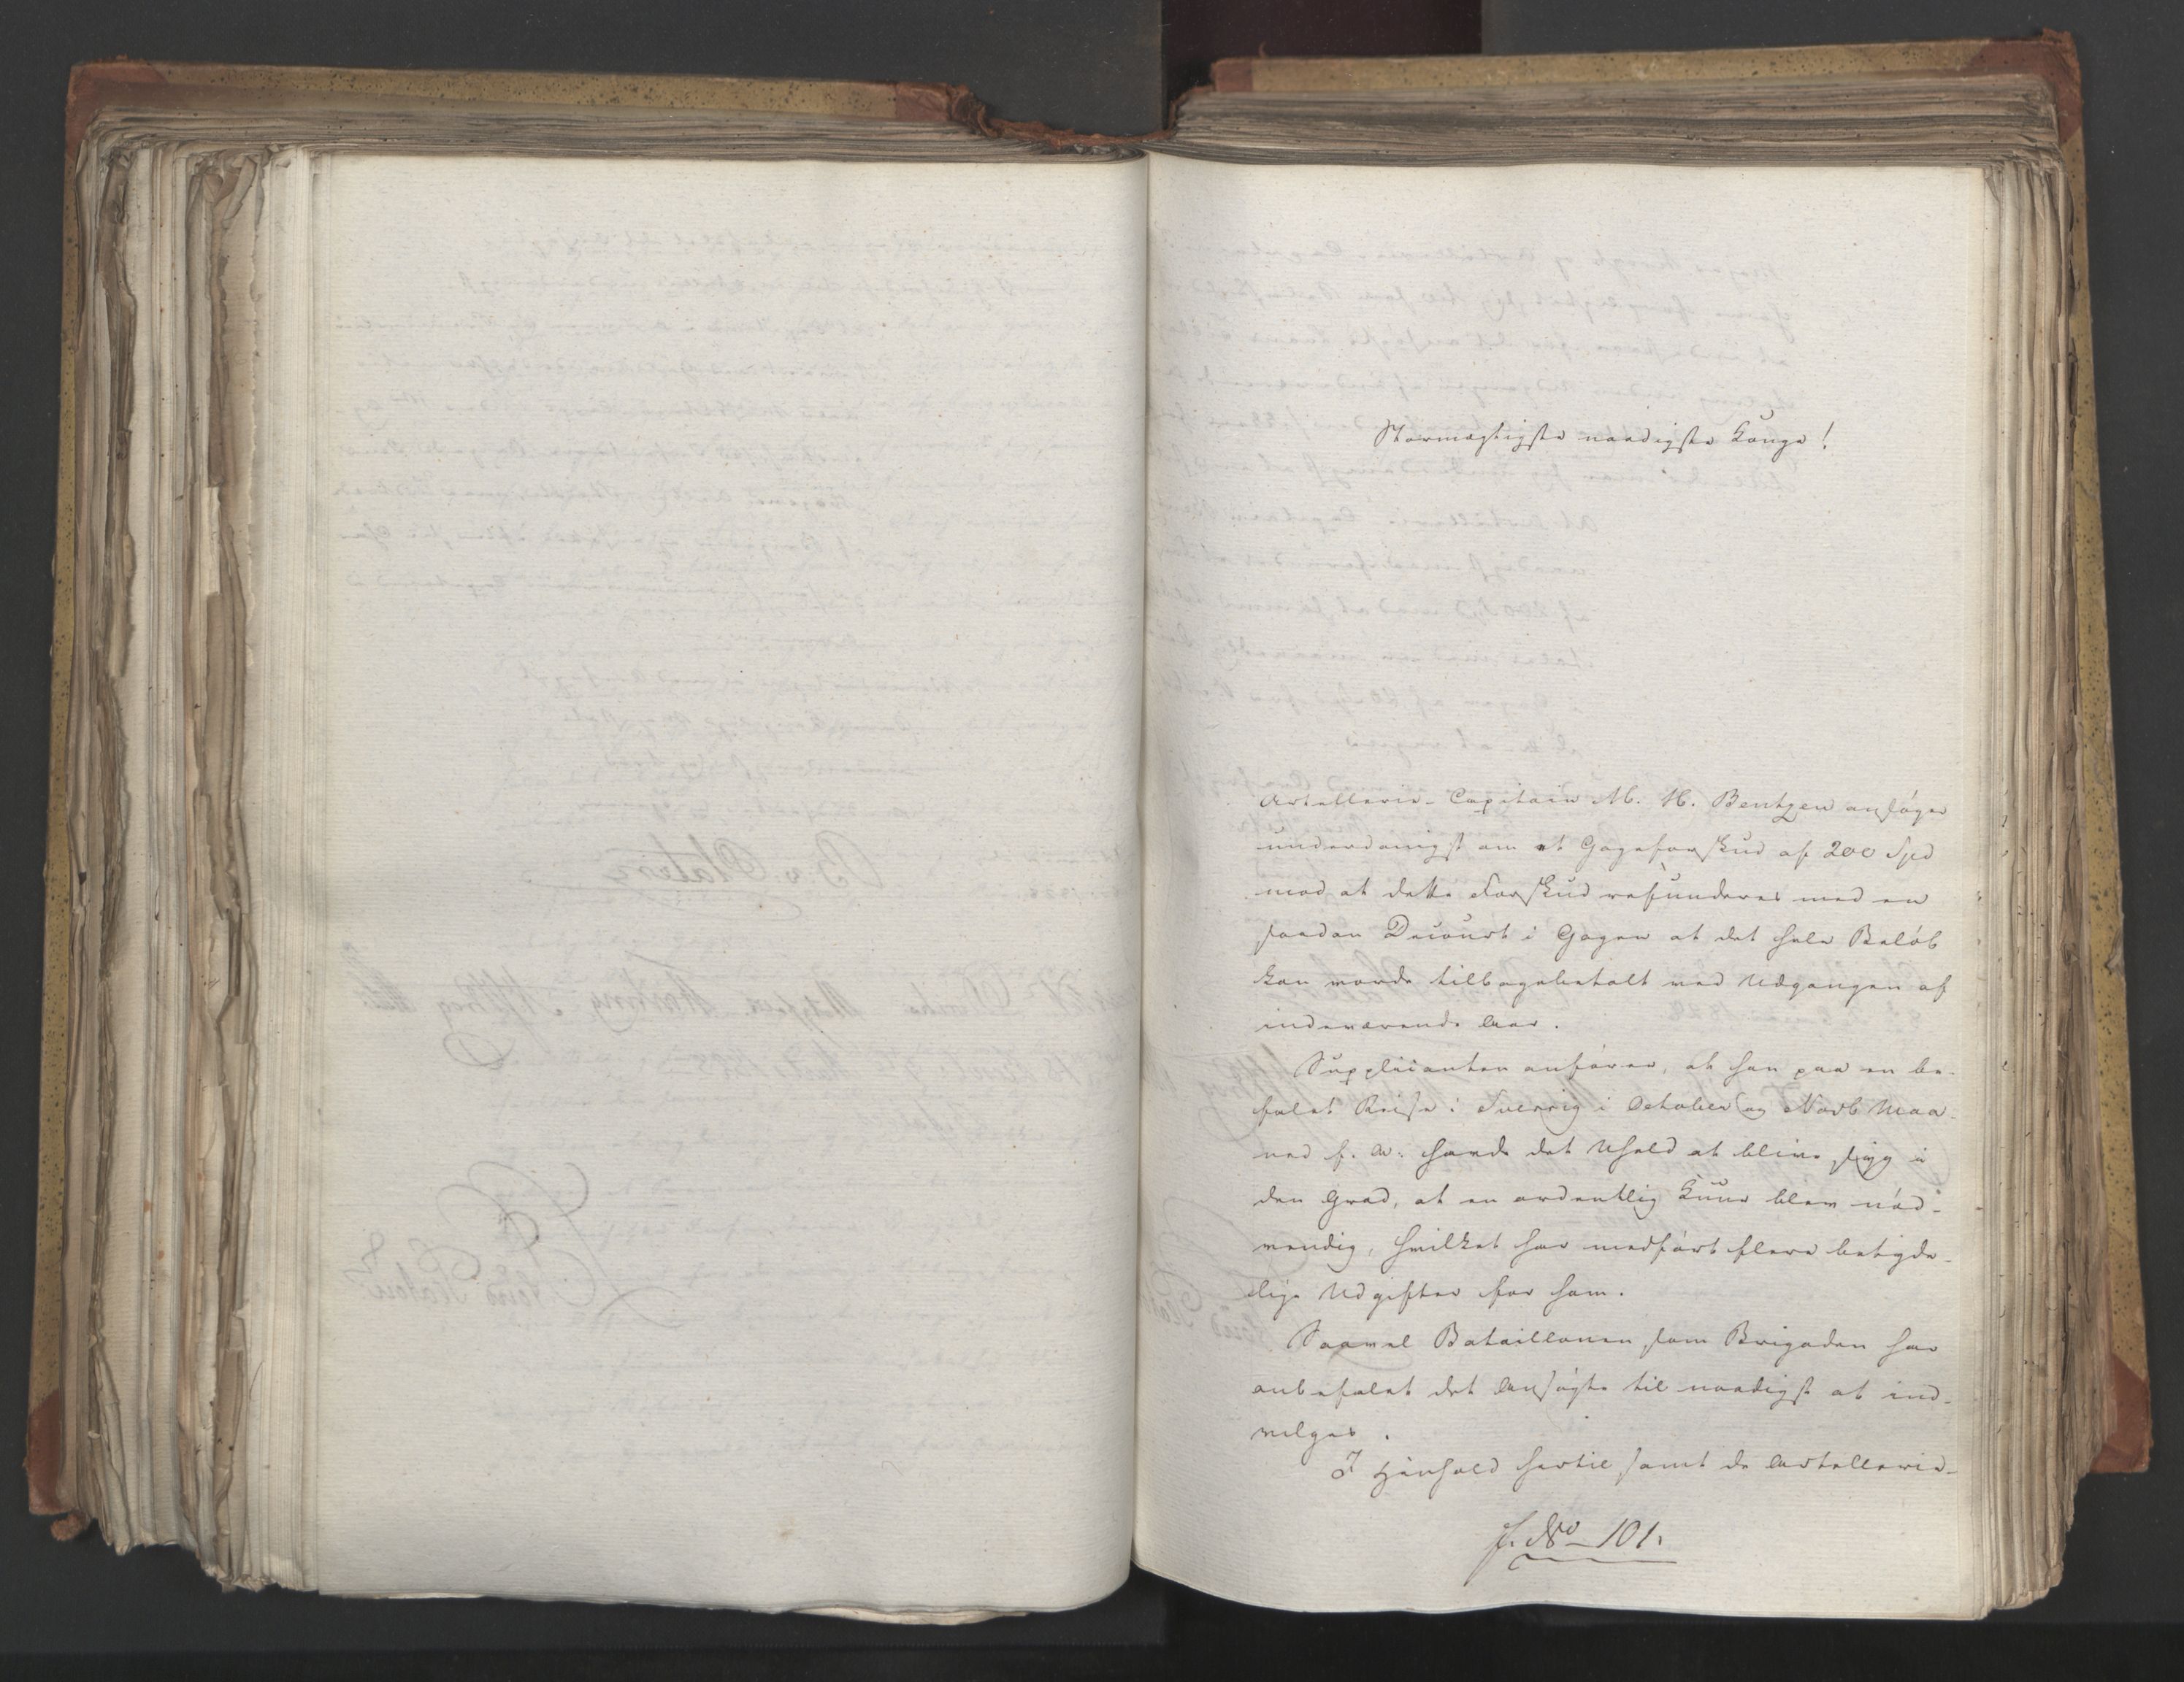 Stormægtigste naadigste Konge!
Artellerie-Capitain M. H. Bentzen ansøger
underdanigst om et Gageforskud af 200 Spd
mod at dette Forskud refunderes med en
saadan Decourt i Gagen at det hele Beløb
kan vorde tilbagebetalt ved Udgangen af
indeværende Aar.
Supplicanten anfører, at han paa en be-
falet Reise i Sverrig i October og Novb Maa-
ned f. A. havde det Uheld at blive syg i
den Grad, at en ordentlig Kuur blev nød-
vendig, hvilket har medført flere betyde-
lige Udgifter for ham.
Saavel Bataillonen som Brigaden har
anbefalet det Ansøgte til naadigst at ind-
vilges.
I Henhold hertil samt da Artellerie-
f. No 101.